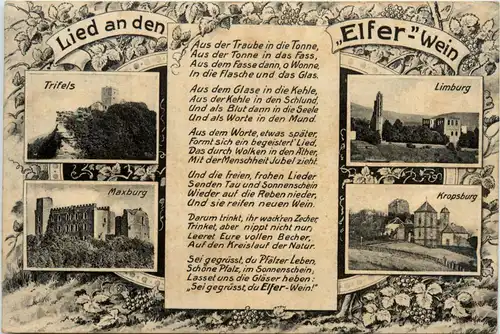 Lied an den „Elfer-"Wein
Trifels
Maxburg
Aus der Traube in die Tonne,
Aus der Tonne in das Fass,
Aus dem Fasse dann, o Wonne,
In die Flasche und das Glas.
Aus dem Glase in die Kehle,
Aus der Kehle in den Schlund,
Und als Blut dann in die Seele
Und als Worte in den Mund.
Aus dem Worte, etwas später,
Formt sich ein begeistert' Lied,
Das durch Wolken in den Äther,
Mit der Menschheit Jubel zieht.
Und die freien, frohen Lieder
Senden Tau und Sonnenschein
Wieder auf die Reben nieder,
Und sie reifen neuen Wein.
Darum trinkt, ihr wack'ren Zecher,
Trinket, aber nippt nicht nur,
Leeret Eure vollen Becher,
Auf den Kreislauf der Natur.
Sei gegrüsst, du Pfälzer Leben,
Schöne Pfalz, im Sonnenschein,
Lasset uns die Gläser heben:
„Sei gegrüsst, du Elfer-Wein!"
Limburg
Kropsburg